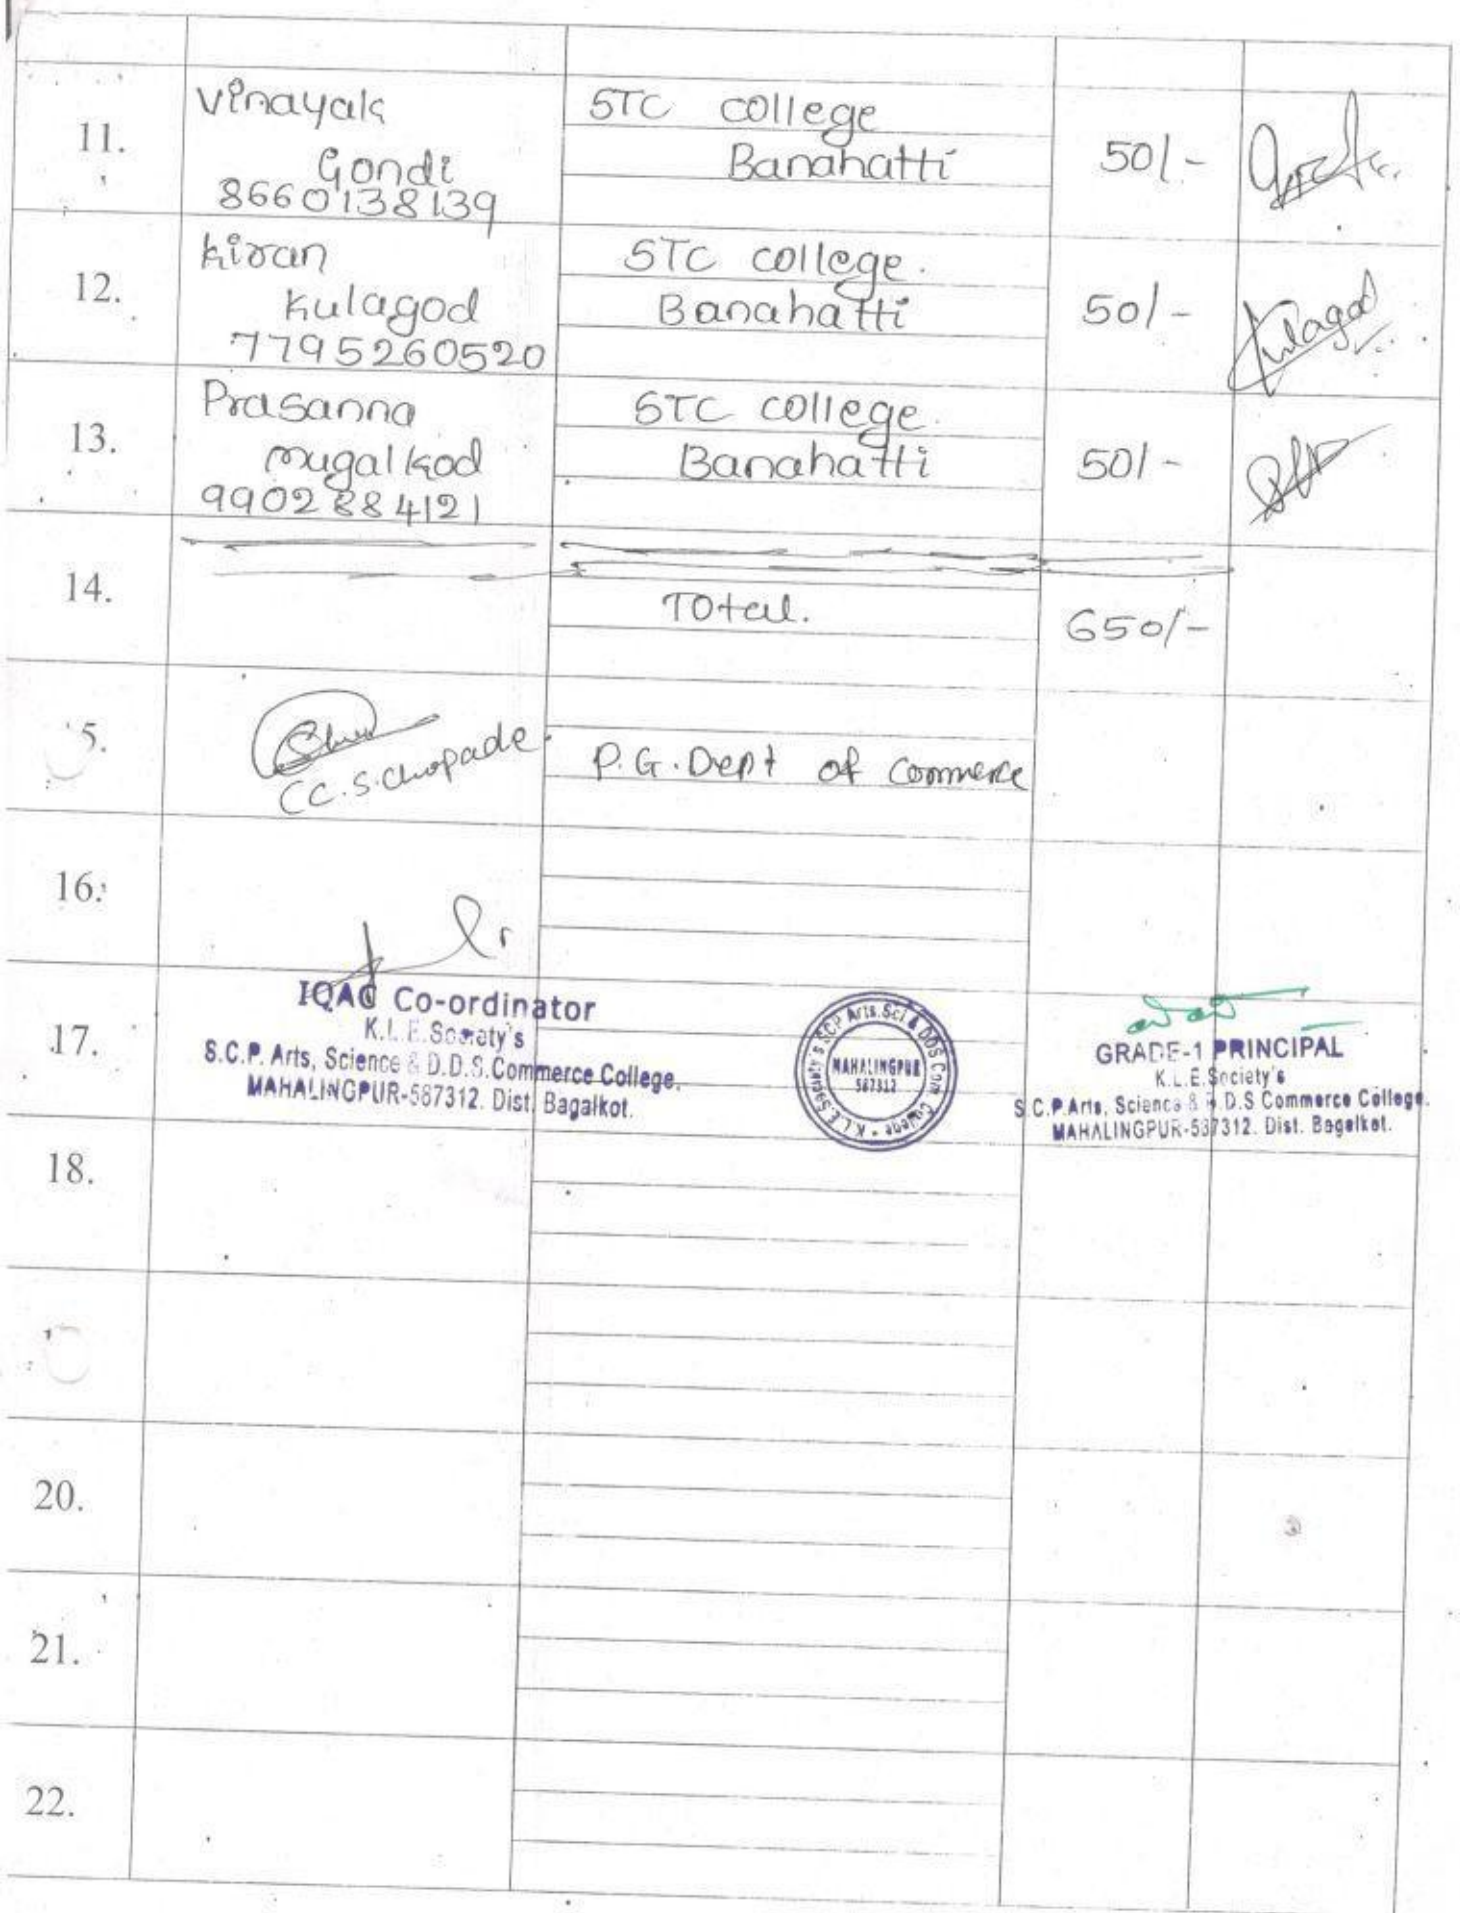 11.
Vinayak
Gondi
8660138139
STC college
Banahatti
50/-
12.
Kiran
Kulagod
7795260520
STC college.
Banahatti
50/-
Kulagod
13.
Prasanna
mugalkod
9902884121
STC college.
Banahatti
50/-
14.
Total.
650/-
5.
(C.S.Chopade
P.G.Dept of Commerce
16.
17.
IQAC Co-ordinator
K.L.E.Society's
S.C.P. Arts, Science & D.D.S.Commerce College.
MAHALINGPUR-587312. Dist. Bagalkot.
K.L.E.Society's SCP Arts.Sci & DDS Com College
MAHALINGPUR
587312
GRADE-1 PRINCIPAL
K.L.E.Society's
S.C.P.Arts, Science & D.D.S Commerce College.
MAHALINGPUR-587312. Dist. Bagalkot.
18.
20.
21.
22.